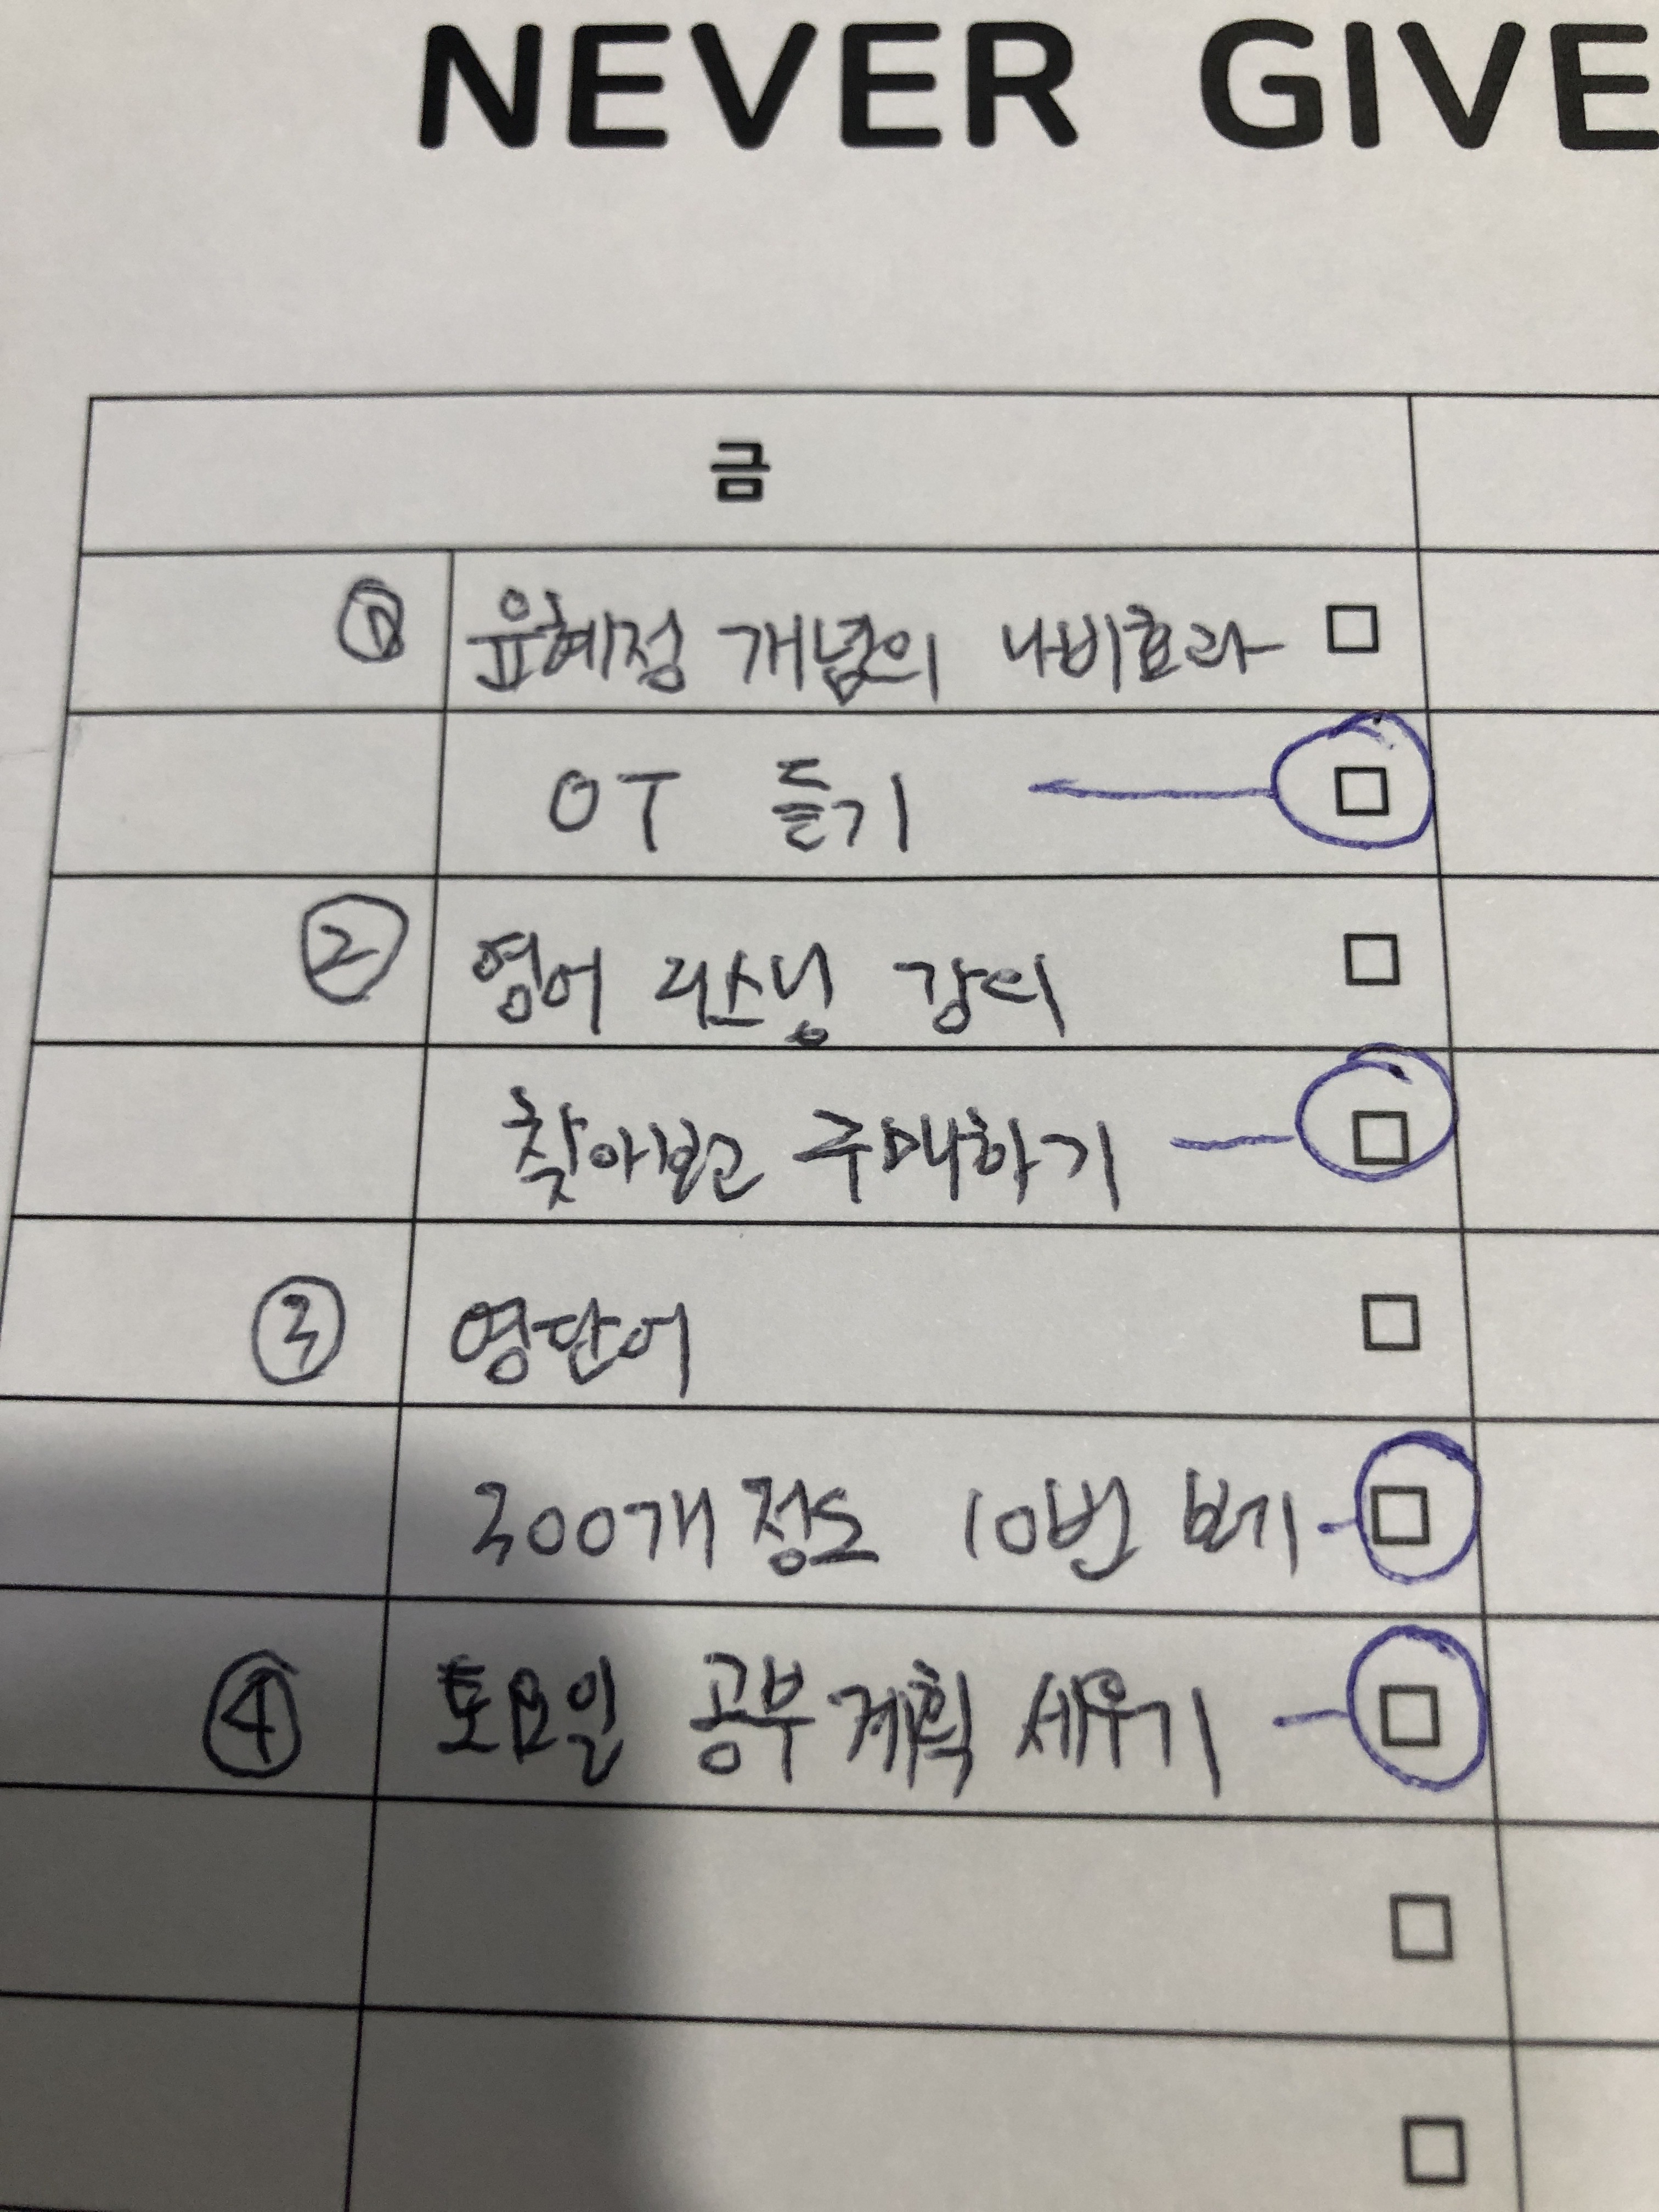 NEVER GIVE
금
① 윤혜정 개념의 나비효과 □
OT 듣기 □
② 영어 리스닝 강의 □
찾아보고 구매하기 □
③ 영단어 □
300개 정도 10번 보기 □
④ 토요일 공부 계획 세우기 □
□
□